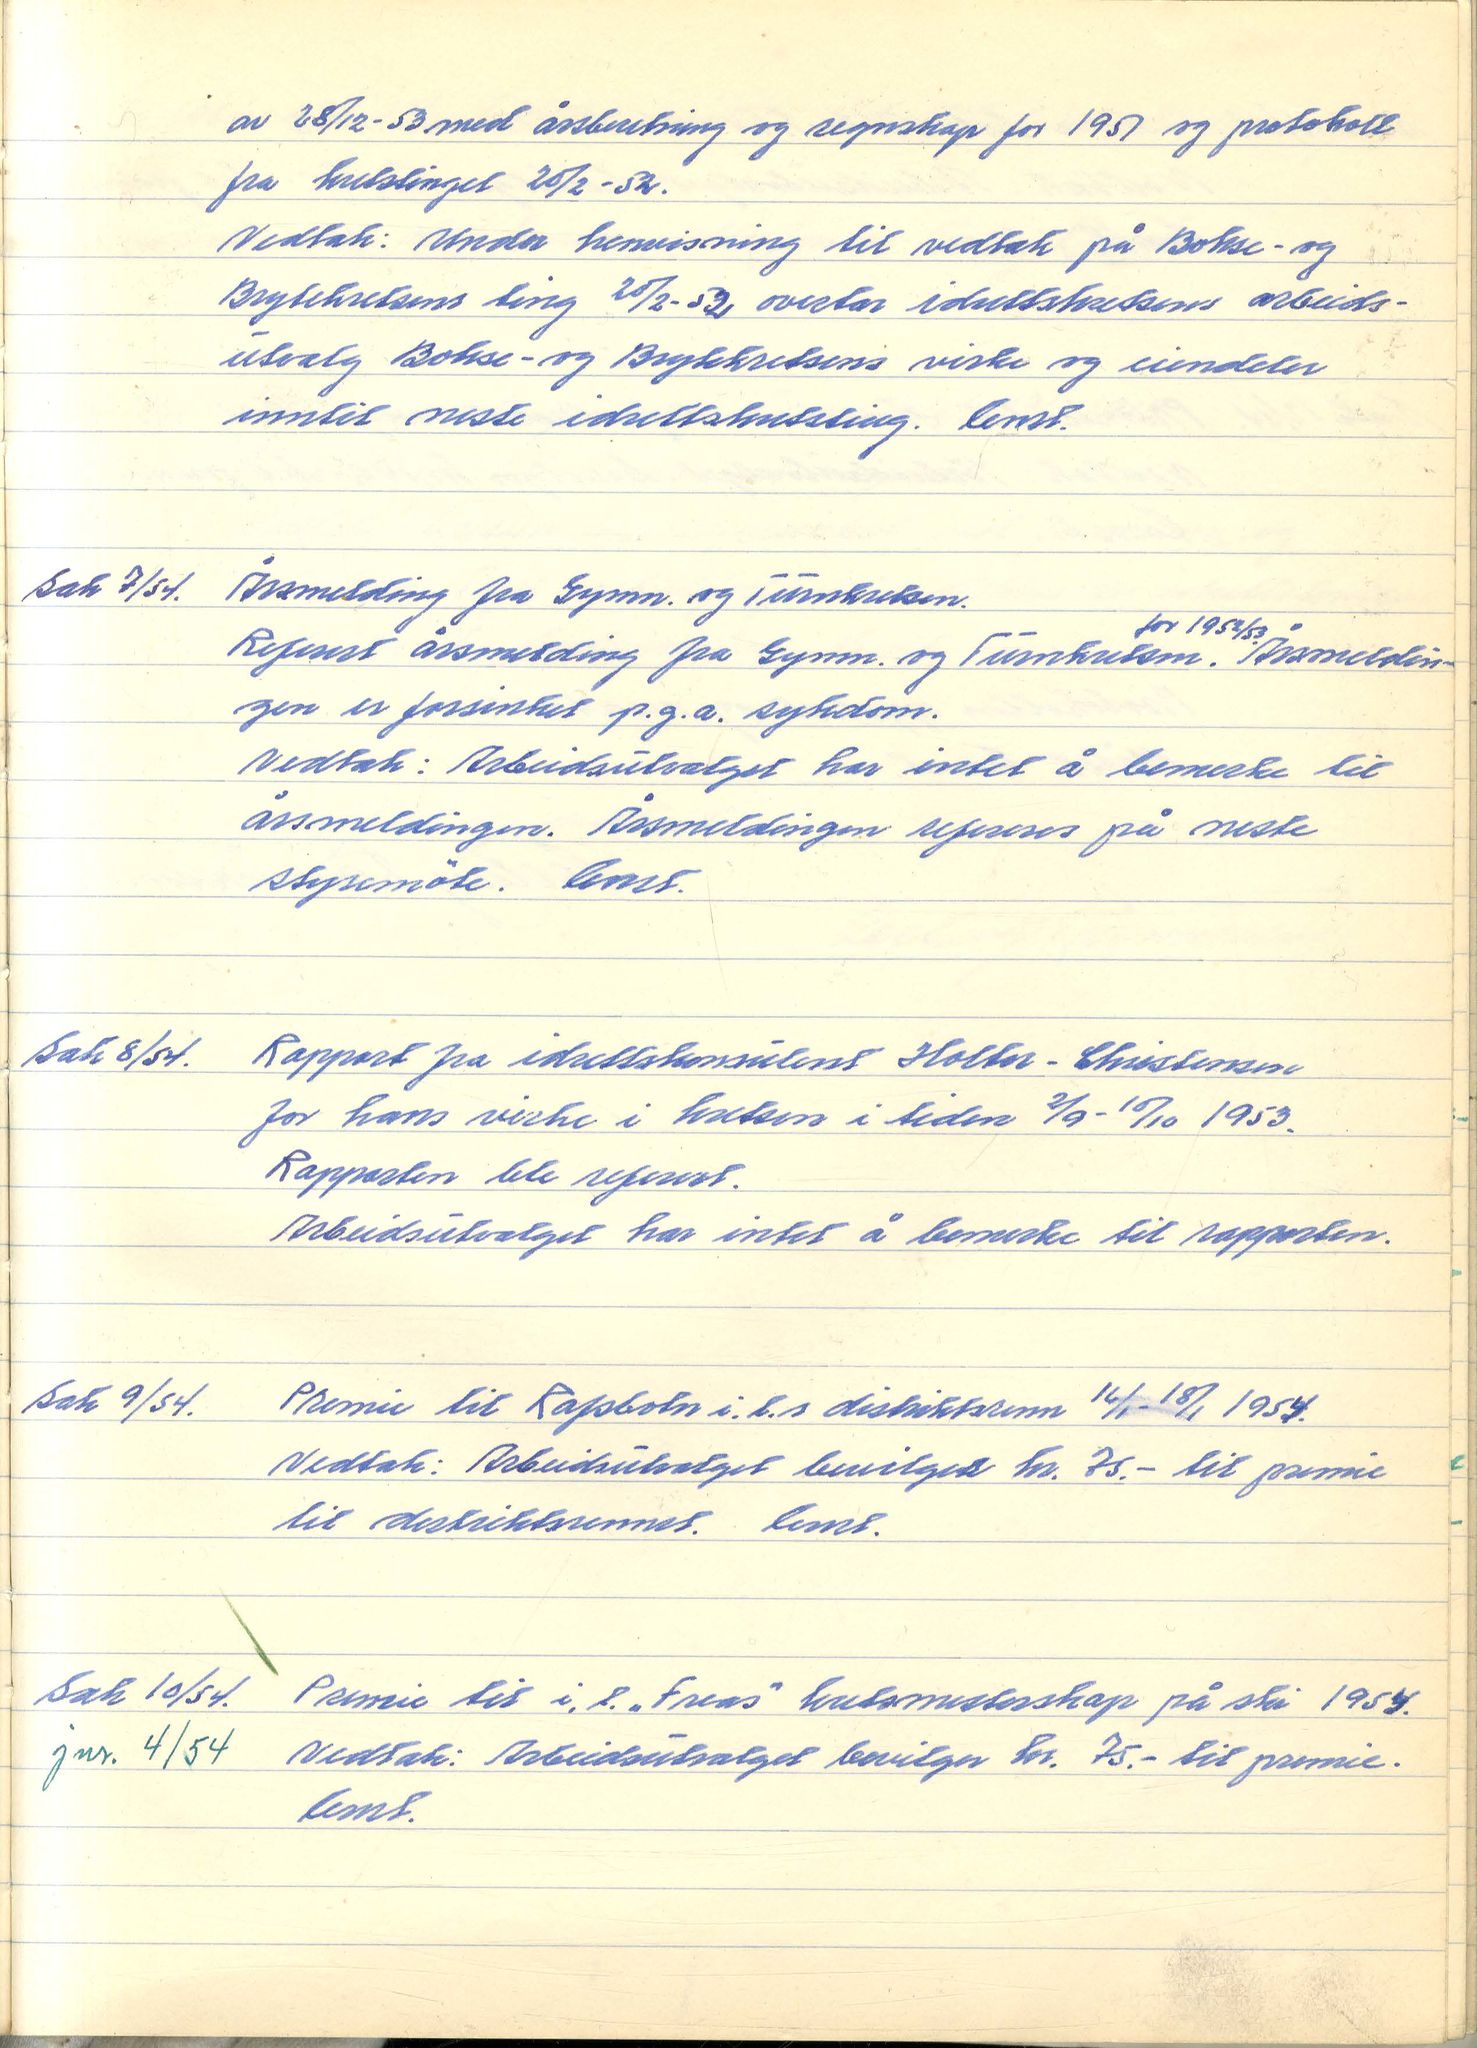 av 28/12-53 med årsberetning og regnskap for 1951 og protokoll
fra kretstinget 25/2-52.
Vedtak: Under henvisning til vedtak på Bokse- og
Brytekretsens ting 25/2-52 overtar idrettskretsens arbeids-
utvalg Bokse- og Brytekretsens virke og eiendeler
inntil neste idrettskretsting. Enst.
Sak 7/54. Årsmelding fra Gymn. og Turnkretsen.
Referert årsmelding fra Gymn. og Turnkretsen for 1952/53. Årsmeldin-
gen er forsinket p.g.a. sykdom.
Vedtak: Arbeidsutvalget har intet å bemerke til
årsmeldingen. Årsmeldingen refereres på neste
styremöte. Enst.
Sak 8/54. Rapport fra idrettskonsulent Holter-Christensen
for hans virke i kretsen i tiden 2/9-10/10 1953.
Rapporten ble referert.
Arbeidsutvalget har intet å bemerke til rapporten.
Sak 9/54. Premie til Rafsbotn i.l.s distriktsrenn 16/1-18/1 1954.
Vedtak: Arbeidsutvalget bevilger kr. 75.- til premie
til distriktsrennet. Enst.
Sak 10/54. Premie til i.l. „Freas" kretsmesterskap på ski 1954.
jnr. 4/54 Vedtak: Arbeidsutvalget bevilger kr. 75.- til premie.
Enst.